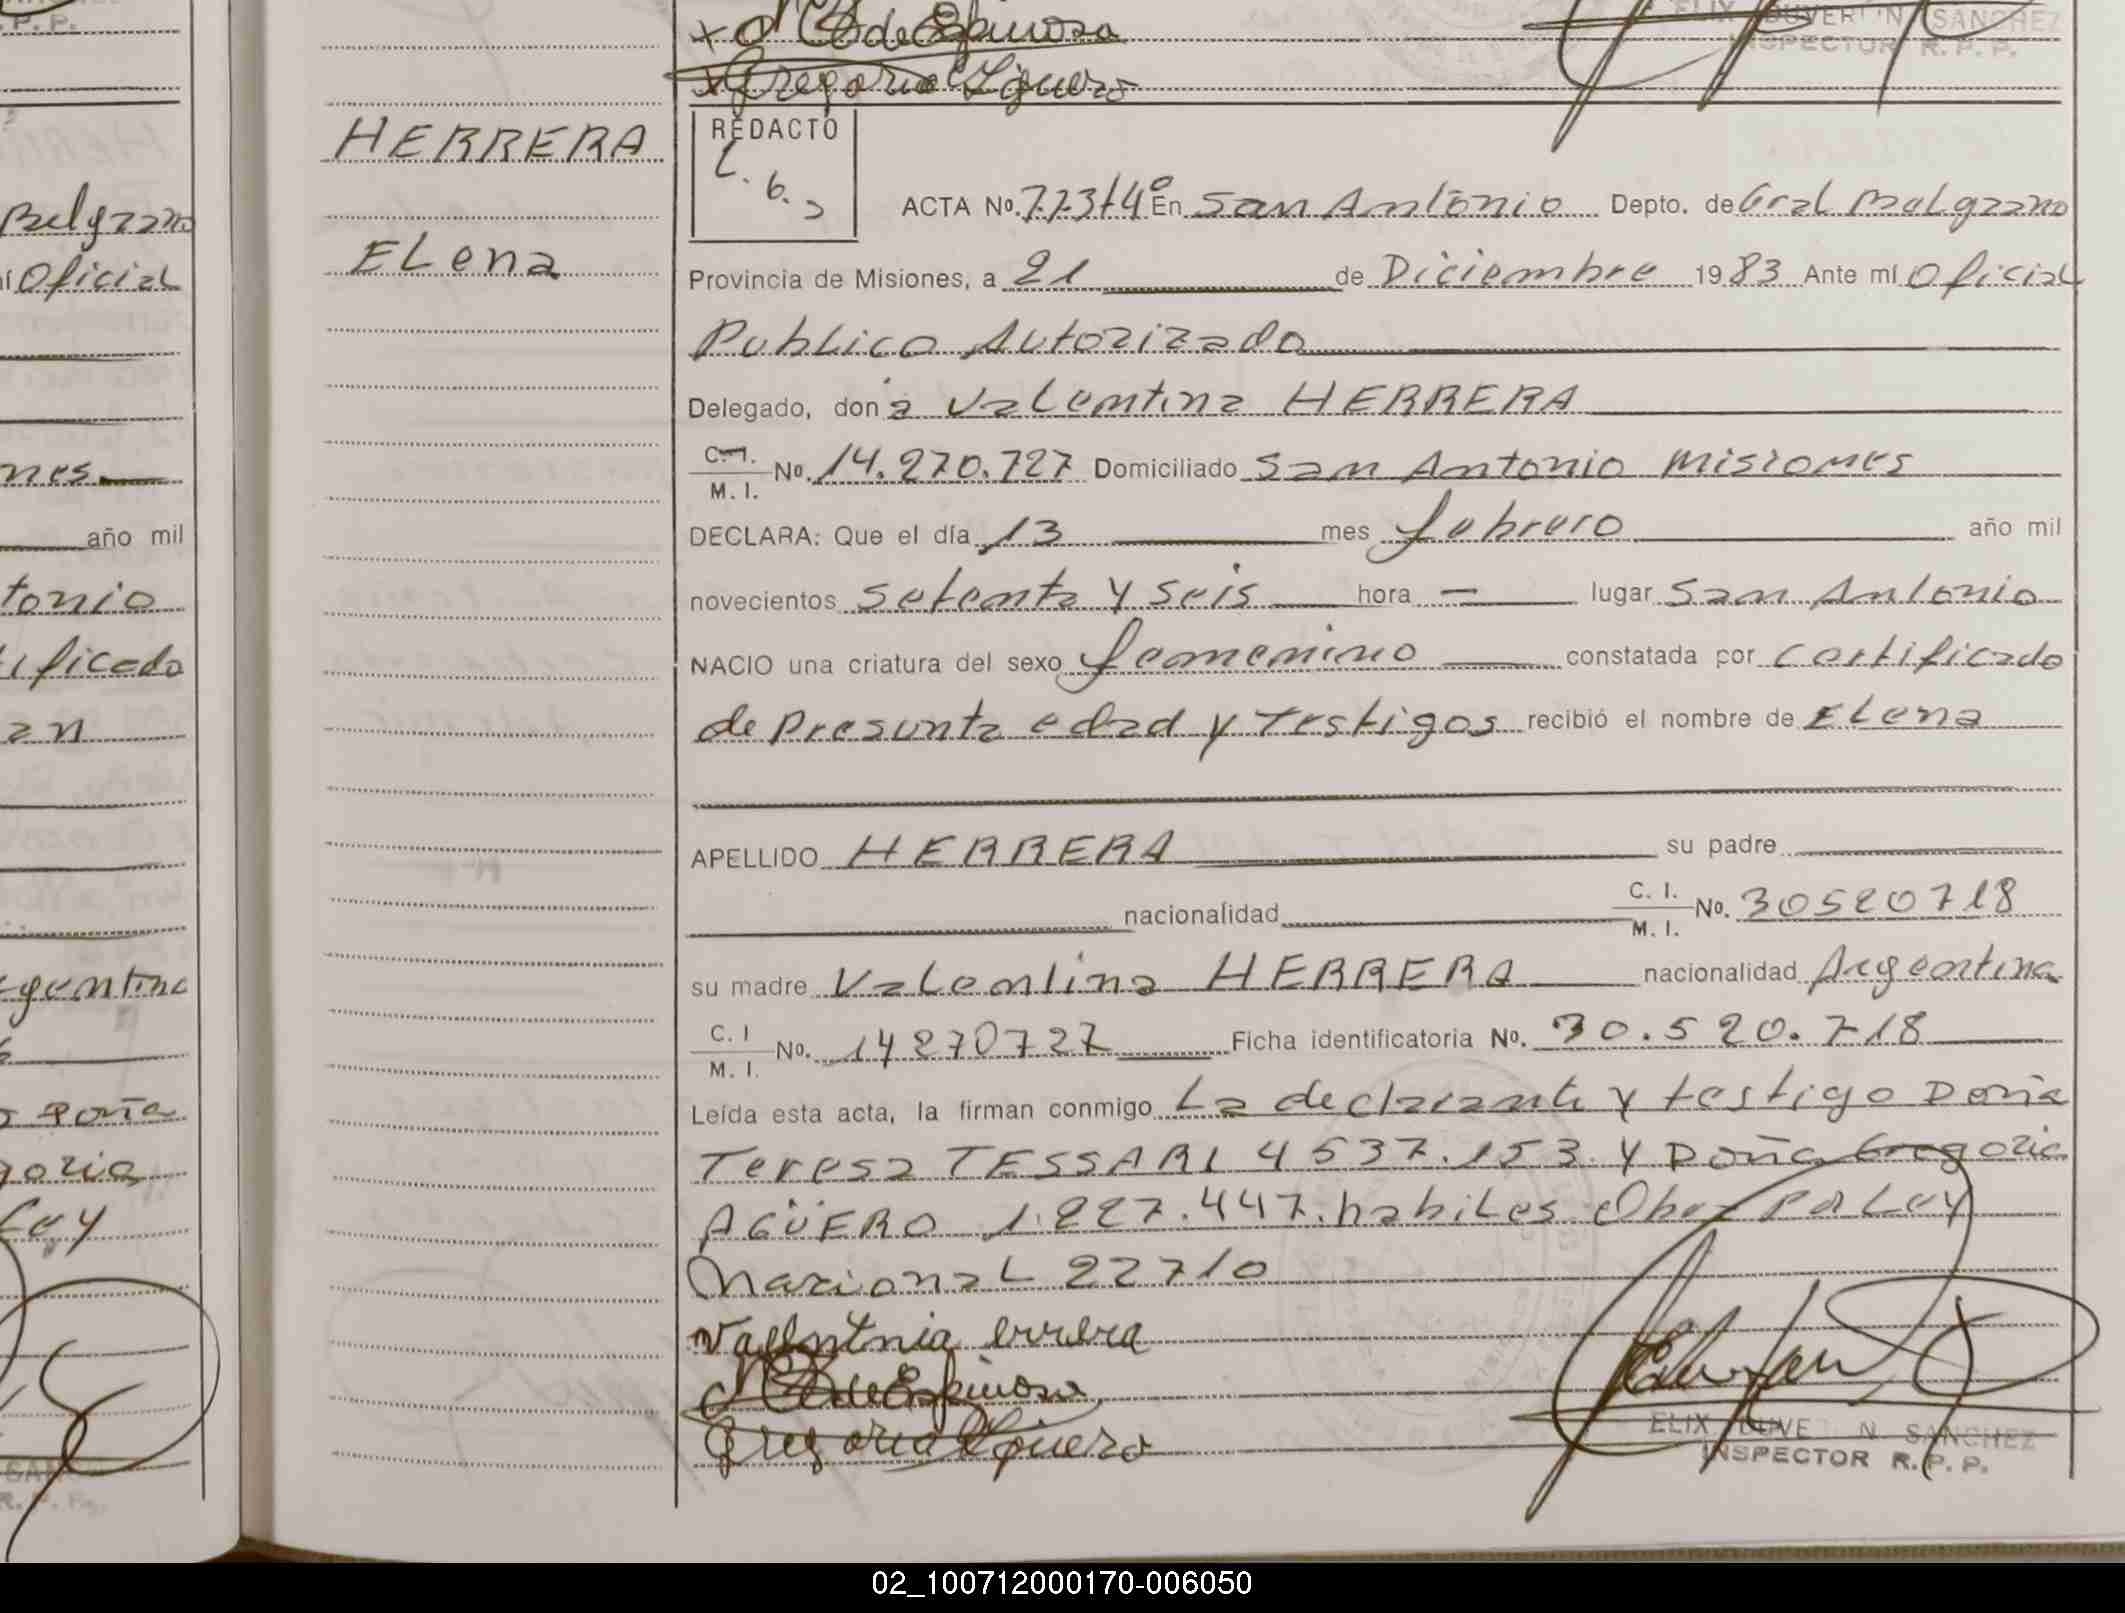 R. P. P.
Belgrano
mí Oficial
nes
año mil
tonio
tificado
an
gentina
Doña
goria
Ley
R. P. P.
M T de Espinosa
Gregoria Aguero
ELIX DUVER N SANCHEZ
INSPECTOR R. P. P.
HERRERA
ELena
REDACTÓ
L. b.
ACTA No. 7.7.3/4º En San Antonio Depto. de Gral Belgrano
Provincia de Misiones, a 21 de Diciembre 1983 Ante mí Oficial
Publico Autorizado
Delegado, don a Valentina HERRERA
C. I. M. I. No. 14.270.727 Domiciliado San Antonio Misiones
DECLARA: Que el día 13 mes febrero año mil
novecientos setenta y seis hora — lugar San Antonio
NACIO una criatura del sexo femenino constatada por certificado
de presunta edad y testigos recibió el nombre de ELena
APELLIDO HERRERA su padre
nacionalidad C. I. M. I. No. 30520718
su madre Valentina HERRERA nacionalidad Argentina
C. I M. I. No. 14270727 Ficha identificatoria No. 30.520.718
Leída esta acta, la firman conmigo La declarante y testigo Doña
Teresa TESSARI 4537.153 y Doña Gregoria
AGÜERO 1.227.447. habiles Obra por Ley
Nacional 22710
Valentnia errera
M T de Espinosa
Gregoria Aguero
ELIX DUVE N SANCHEZ
INSPECTOR R. P. P.
02_100712000170-006050